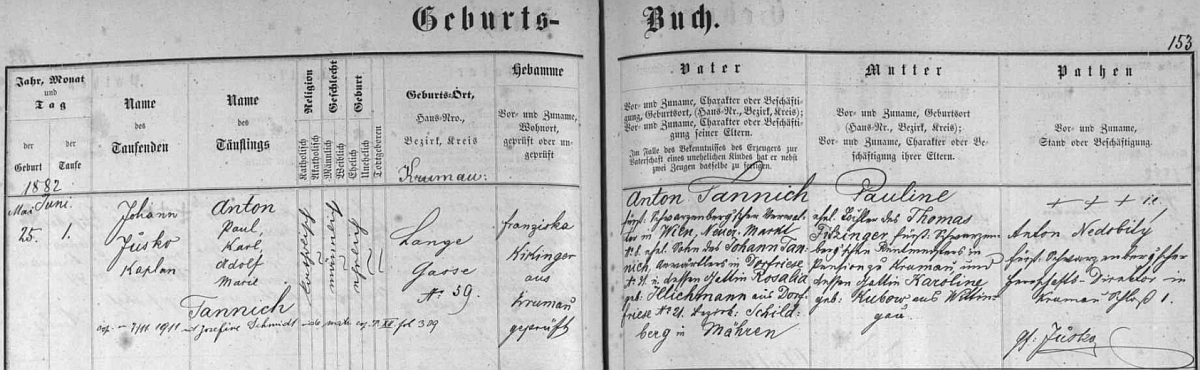 Geburts-
Buch.
153
Jahr, Monat
und
Tag
der
Geburt
der
Taufe
Name
des
Taufenden
Name
des
Täuflings
Religion
Katholisch
Akatholisch
Geschlecht
Männlich
Weiblich
Geburt
Ehelich
Unehelich
Todtgeboren
Geburts-Ort,
Haus-Nro.,
Bezirk, Kreis
Krumau:
Hebamme
Vor- und Zuname,
Wohnort,
geprüft oder un-
geprüft
Vater
Vor- und Zuname, Charakter oder Beschäfti-
gung, Geburtsort, (Haus-Nr., Bezirk, Kreis);
Vor- und Zuname, Charakter oder Beschäfti-
gung seiner Eltern.
Im Falle des Bekenntnisses des Erzeugers zur
Vaterschaft eines unehelichen Kindes hat er nebst
zwei Zeugen dasselbe zu fertigen.
Mutter
Vor- und Zuname, Geburtsort
(Haus-Nr., Bezirk, Kreis);
Vor- und Zuname, Charakter oder Be-
schäftigung ihrer Eltern.
Pathen
Vor- und Zuname,
Stand oder Beschäftigung.
1882
Mai Juni.
25. 1.
Johann
Jusko
Kaplan
Anton
Paul,
Karl,
Adolf
Marie
Tannich
katholisch
männlich
ehelich
Lange
Gasse
No 59.
Franziska
Kirlinger
aus
Krumau
geprüft
Anton Tannich
fürst. Schwarzenberg'scher Verwal-
ter in Wien, Neuer Markt
No 8. ehel. Sohn des Johann Tan-
nich, in Dorfriese
No 21. u. dessen Gattin Rosalia
geb. Illichmann aus Dorf-
friese No 21. Bezirk: Schild-
berg in Mähren
Pauline
ehel. Tochter des Thomas
fürst. Schwarzen-
berg'schen Rentmeisters in
Pension zu Krumau und
dessen Gattin Karoline
geb. Kubow aus Wittin-
gau.
+ + +
Anton Nedobitý
fürst. Schwarzenberg'scher
Herrschafts-Direktor in
Krumau Schloß 1.
Jusko
1911 Josefine Schmidt